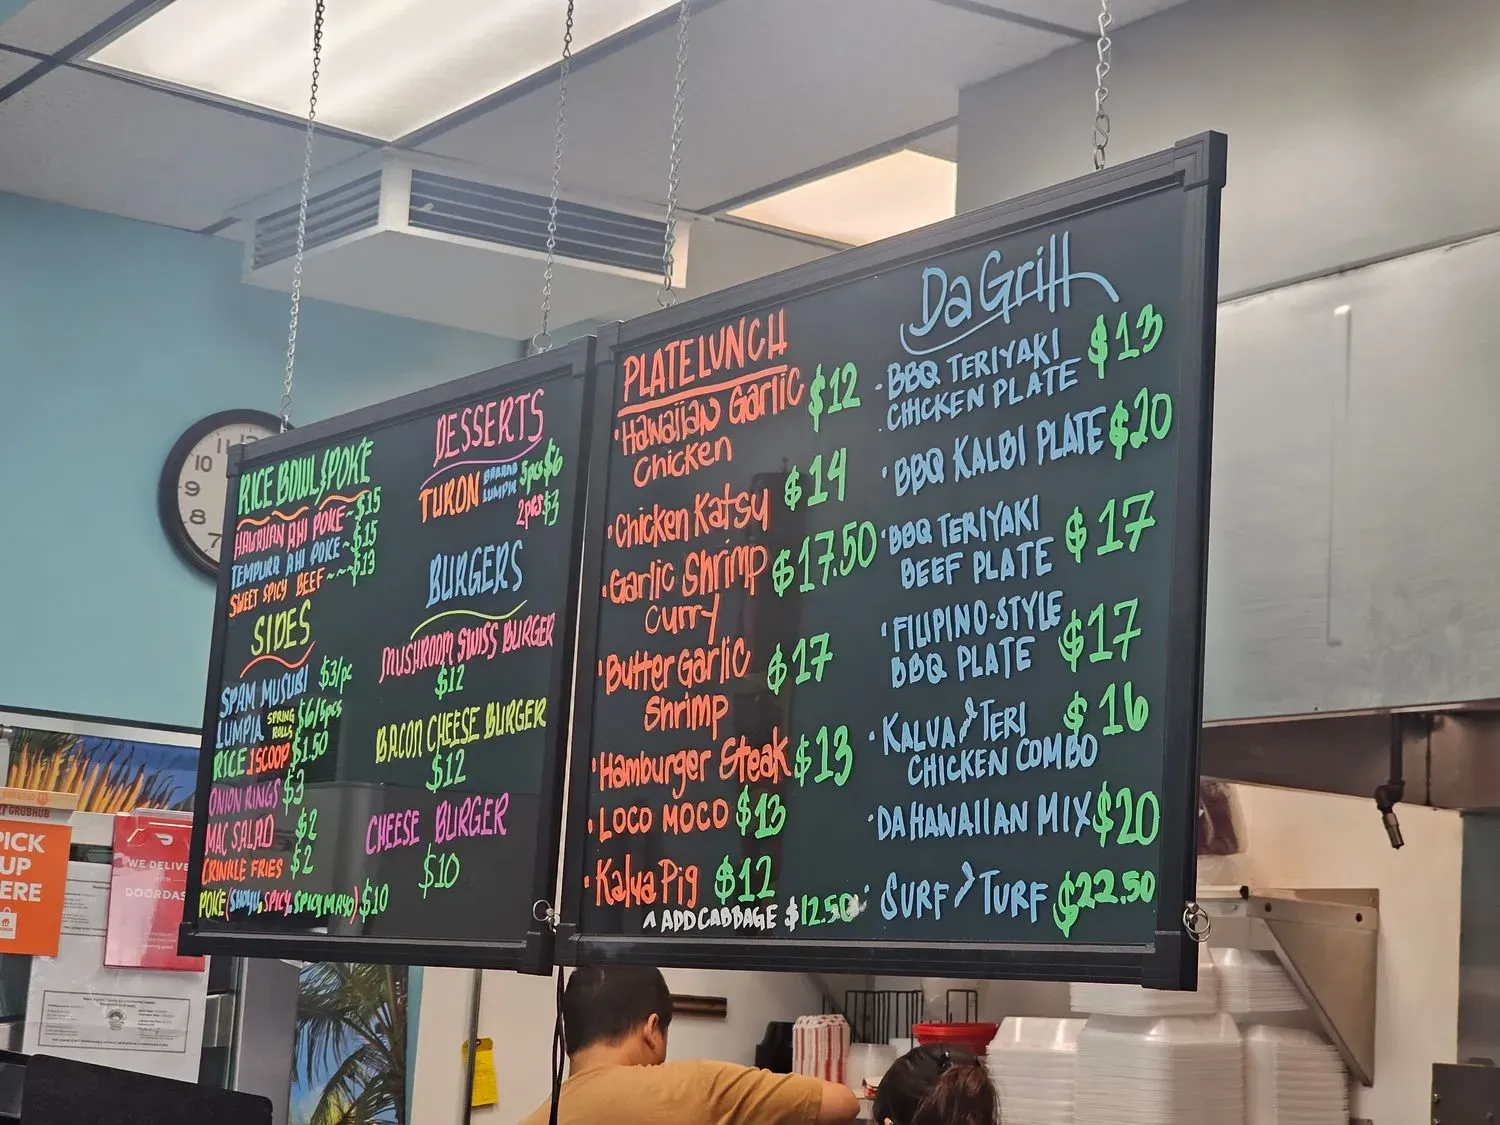 RICE BOWL & POKE
HAWAIIAN AHI POKE ~ $15
TEMPURA AHI POKE ~ $15
SWEET SPICY BEEF ~~~ $13
SIDES
SPAM MUSUBI $3/pc
LUMPIA SPRING ROLLS $6/5pcs
RICE 1 SCOOP $1.50
ONION RINGS $3
MAC SALAD $2
CRINKLE FRIES $2
POKE (SHOYU, SPICY, SPICY MAYO) $10
DESSERTS
TURON BANANA LUMPIA 5pcs $6
2pcs $3
BURGERS
MUSHROOM SWISS BURGER
$12
BACON CHEESE BURGER
$12
CHEESE BURGER
$10
PLATE LUNCH
• Hawaiian Garlic $12
Chicken
• Chicken Katsu $14
• Garlic Shrimp $17.50
Curry
• Butter Garlic $17
Shrimp
• Hamburger Steak $13
• LOCO MOCO $13
• Kalua Pig $12
^ ADD CABBAGE $12.50
Da Grill
• BBQ TERIYAKI $13
CHICKEN PLATE
• BBQ KALBI PLATE $20
• BBQ TERIYAKI $17
BEEF PLATE
• FILIPINO-STYLE $17
BBQ PLATE
• KALUA & TERI $16
CHICKEN COMBO
• DA HAWAIIAN MIX $20
• SURF & TURF $22.50
11
10
9
8
7
GRUBHUB
PICK
UP
ERE
WE DELIVE
WITH
DOORDAS